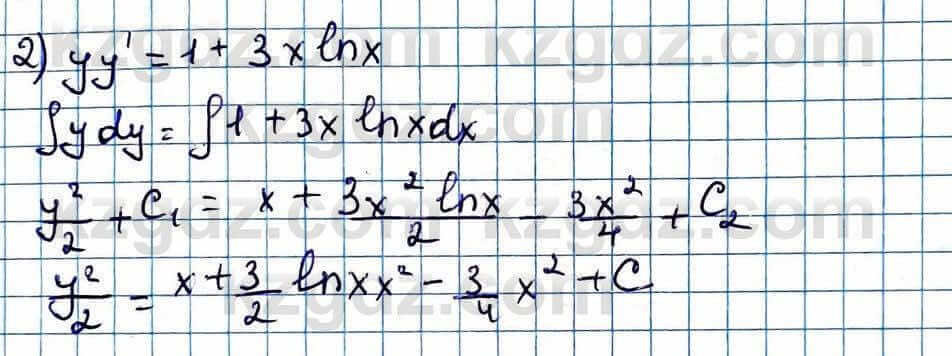 2) yy' = 1 + 3x lnx
∫y dy = ∫1 + 3x lnx dx
y²/2 + C₁ = x + 3x² lnx/2 - 3x²/4 + C₂
y²/2 = x + 3/2 lnx x² - 3/4 x² + C
kzgdz.com